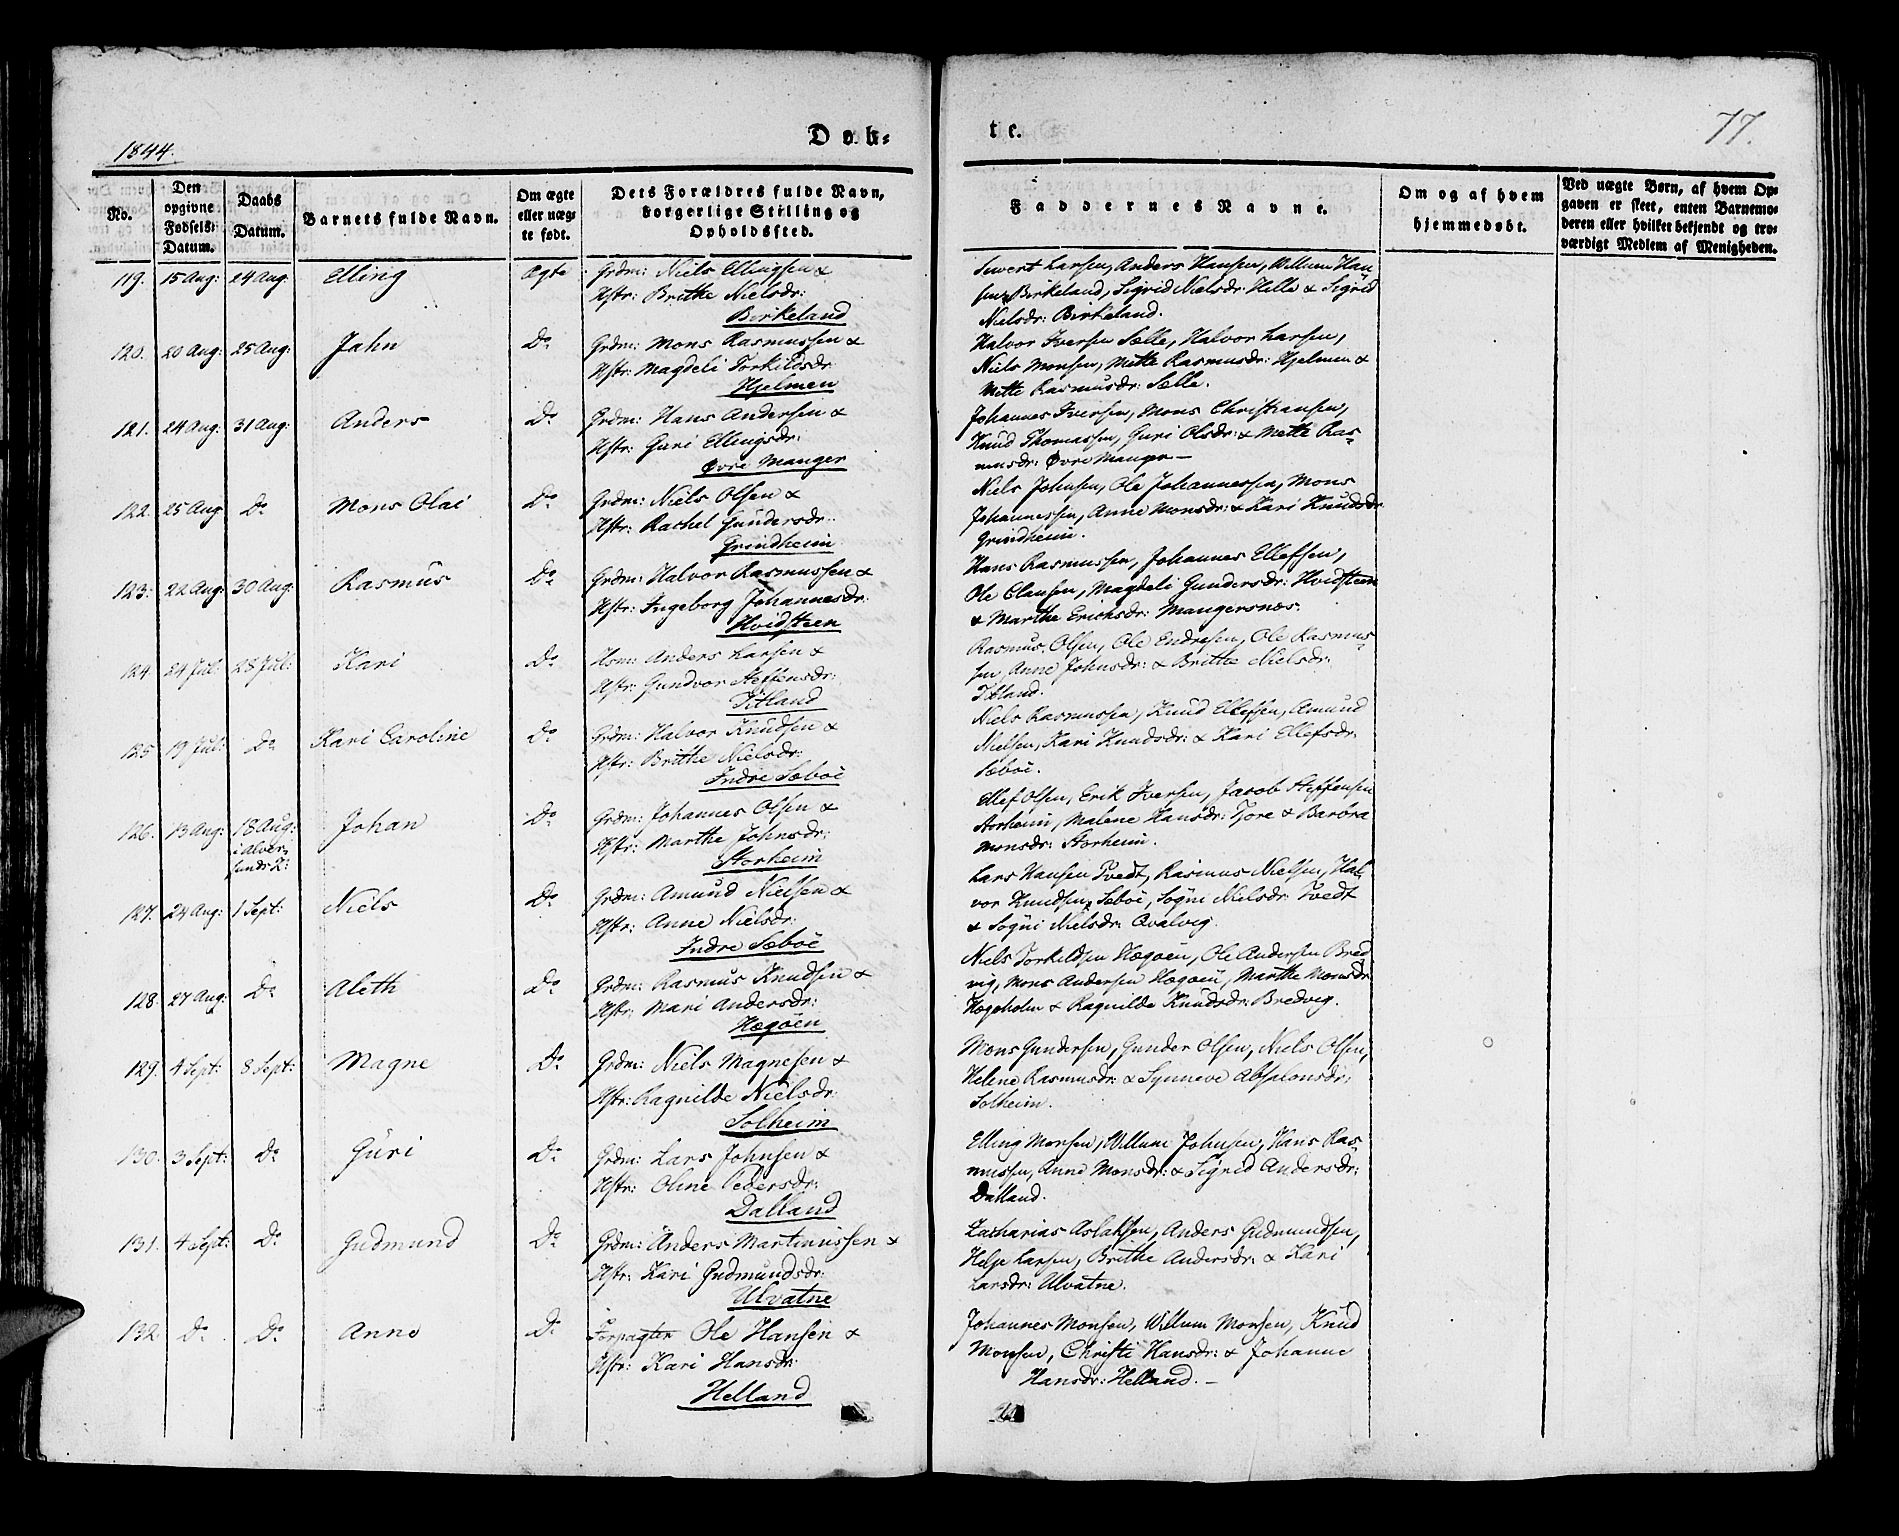 1844.
Døb-
te.
77.
No.
Den opgivne Fødsels-Datum.
Daabs Datum.
Barnets fulde Navn.
Om ægte eller uægte født.
Dets Forældres fulde Navn, borgerlige Stilling og Opholdssted.
Faddernes Navne.
Om og af hvem hjemmedøbt.
Ved uægte Børn, af hvem Opgaven er skeet, enten Barnemoderen eller hvilket bekjendt og troværdigt Medlem af Menigheden.
119. 15 Aug: 24 Aug: Elling Ægte Grdm: Niels Ellingsen &
Hstr: Brithe Nielsdr:
Birkeland
Sivert Larsen, Anders Hansen, Willum Han-
sen Birkeland, Sigrid Nielsdr: Helle & Sigrid
Nielsdr: Birkeland.
120. 20 Aug: 25 Aug: Jahn Do Grdm: Mons Rasmussen &
Hstr: Magdeli Torkildsdr:
Hjelmen
Halvor Iversen Sælle, Halvor Larsen,
Niels Monsen, Mette Rasmusdr: Hjelmen &
Mette Rasmusdr: Sælle.
121. 24 Aug: 31 Aug: Anders Do Grdm: Hans Andersen &
Hstr: Guri Ellingsdr:
Øvre Manger
Johannes Iversen, Mons Christiansen,
Knud Thomassen, Guri Olsdr: & Mette Ras-
musdr: Øvre Manger —
122. 25 Aug Do Mons Olai Do Grdm: Niels Olsen &
Hstr: Rachel Gundersdr:
Grindheim
Niels Johnsen, Ole Johannessen, Mons
Johannessen, Anne Monsdr: & Kari Knudsdr
Grindheim.
123. 22 Aug: 30 Aug: Rasmus Do Grdm: Halvor Rasmussen &
Hstr: Ingeborg Johannesdr:
Hvidsteen
Hans Rasmussen, Johannes Ellefsen,
Ole Clausen, Magdeli Gundersdr: Hvidsteen
& Marthe Erichsdr: Mangersnæs.
124 24 Jul: 28 Jul: Kari Do Hsm: Anders Larsen &
Hstr: Gundvor Steffensdr:
Titland
Rasmus Olsen, Ole Endresen, Ole Rasmus-
sen, Anne Johnsdr: & Brithe Nielsdr:
Titland.
125 19 Jul: Do Kari Caroline Do Grdm: Halvor Knudsen &
Hstr: Brithe Nielsdr:
Indre Sæboe
Niels Rasmussen, Knud Ellefsen, Amund
Nielsen, Kari Knudsdr: & Kari Ellefsdr:
Sæboe.
126. 13 Aug: 18 Aug: i Alver-
sunds K: Johan Do Grdm: Johannes Olsen &
Hstr: Marthe Johnsdr:
Storheim
Ellef Olsen, Erik Iversen, Jacob Steffensen
Storheim, Malene Hansdr: Tjore & Barbra
Monsdr: Storheim.
127. 24 Aug: 1 Sept: Niels Do Grdm: Amund Nielsen &
Hstr: Anne Nielsdr:
Indre Sæboe
Lars Hansen Tvedt, Rasmus Nielsen, Hal-
vor Knudsen Sæboe, Sogni Nielsdr: Tvedt
& Sogni Nielsdr: Qvalvig.
128. 27 Aug: Do Aleth Do Grdm: Rasmus Knudsen &
Hstr: Mari Andersdr:
Hægøen
Niels Torkildsen Hægøen, Ole Andersen Bred-
vig, Mons Andersen Hægøen, Marthe Monsdr
Hægeholm & Ragnilde Knudsdr: Bredvig.
129. 4 Sept: 8 Sept: Magne Do Grdm: Niels Magnesen &
Hstr: Ragnilde Nielsdr:
Solheim
Mons Gundersen, Gunder Olsen, Niels Olsen,
Helene Rasmusdr: & Synneve Absalonsdr:
Solheim.
130. 3 Sept: Do Guri Do Grdm: Lars Johnsen &
Hstr: Oline Pedersdr:
Dalland
Elling Monsen, Willum Johnsen, Hans Ras-
mussen, Anne Monsdr: & Sigrid Andersdr:
Dalland.
131. 4 Sept: Do Gudmund Do Grdm: Anders Martinussen &
Hstr: Kari Gudmundsdr:
Ulvatne
Zacharias Aslaksen, Anders Gudmundsen,
Helje Larsen, Brithe Andersdr: & Kari
Larsdr: Ulvatne.
132 Do Do Anne Do Forpagter Ole Hansen &
Hstr: Kari Hansdr:
Helland
Johannes Monsen, Willum Monsen, Knud
Monsen, Christi Hansdr: & Johanne
Hansdr: Helland. —